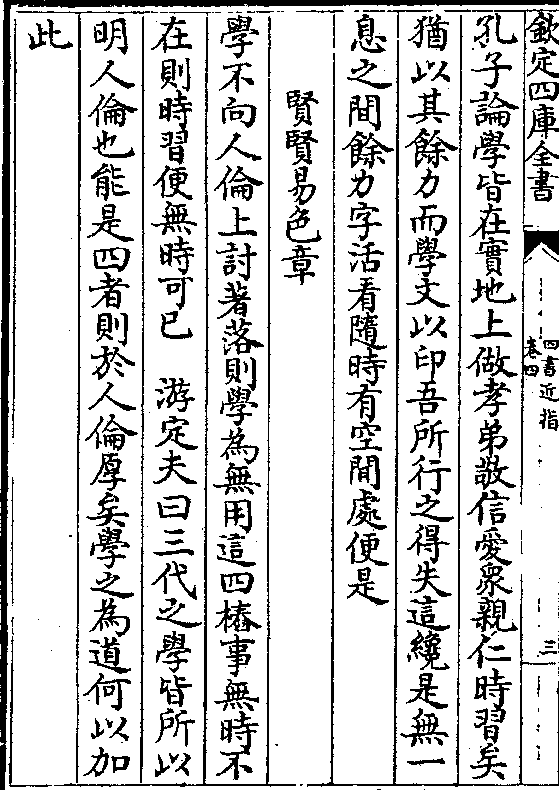 欽定四庫全書
四書近指
卷四
三
孔子論學皆在實地上做孝弟敬信愛衆親仁時習矣
猶以其餘力而學文以印吾所行之得失這纔是無一
息之間餘力字活看隨時有空閒處便是
賢賢易色章
學不向人倫上討著落則學為無用這四樁事無時不
在則時習便無時可已　游定夫曰三代之學皆所以
明人倫也能是四者則於人倫厚矣學之為道何以加
此